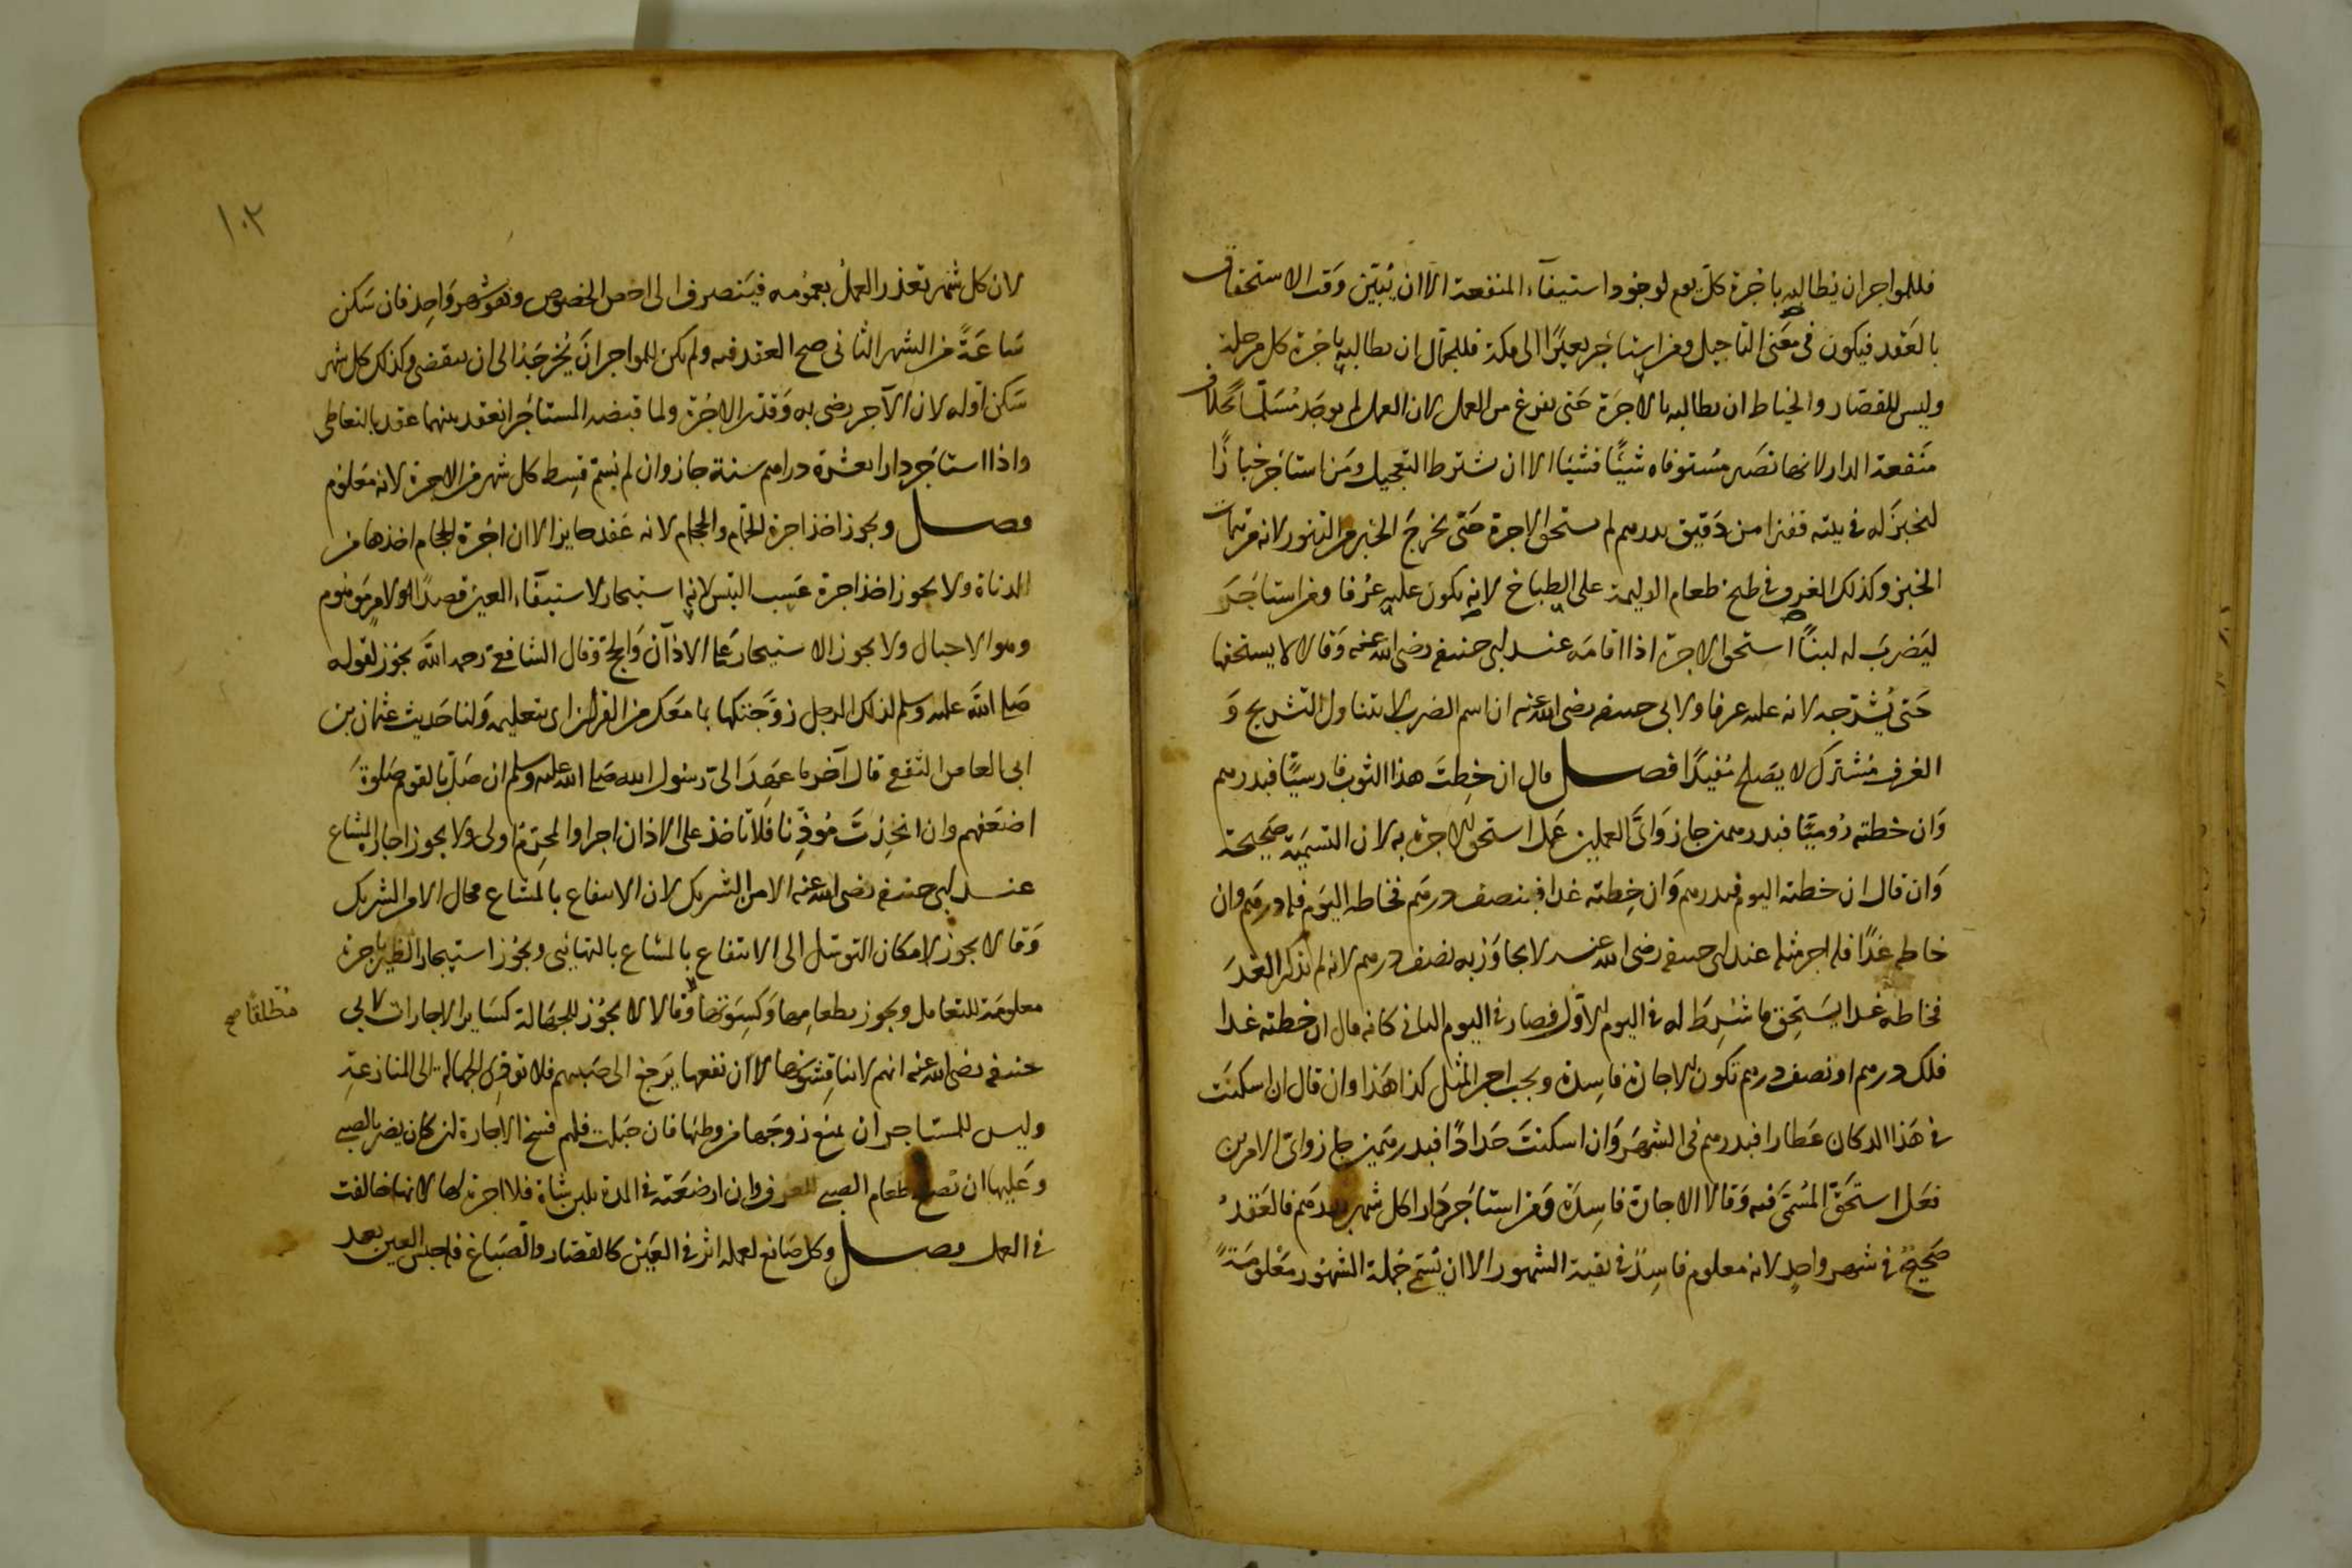 فللمواجر ان يطالبه باجرة كل يوم لوجود استيفآء المنفعة الا ان يبين وقت الاستحقاق
بالعقد فيكون في معنى التاجيل ومن استاجر بعيرًا الى مكة فللجمال ان يطالبه باجرة كل مرحلة
وليس للقصار والخياط ان يطالبه بالاجرة حتى يفرغ من العمل لان العمل لم يوجد مسلما بخلاف
منفعة الدار لانها تصير مستوفاه شيئًا فشيئا الا ان يشترط التعجيل ومن استاجر خبازًا
ليخبز له في بيته قفيزا من دقيق بدرهم لم يستحق الاجرة حتى يخرج الخبز من التنور لانه من تمام
الخبز وكذلك الغرف في طبخ طعام الوليمة على الطباخ لانه يكون عليه عرفا ومن استاجر
ليضرب له لبنًا استحق الاجرة اذا اقامه عند ابي حنيفة رضى الله عنه وقالا لا يستحقها
حتى يشرجه لانه عليه عرفا ولابى حنيفة رضى الله عنه ان اسم الضرب لا يتناول التشريج و
العرف مشترك لا يصلح مفيدًا فصل قال ان خطت هذا الثوب فارسيًا فبدرهم
وان خطته روميًا فبدرهمين جاز واى العملين عمل استحق الاجرة به لان التسمية صحيحة
وان قال ان خطته اليوم فبدرهم وان خطته غدا فبنصف درهم فخاطه اليوم فله درهم وان
خاطه غدًا فله اجر مثله عند ابى حنيفة رضى الله عنه لا يجاوز به نصف درهم لانه لم يذكر الغد
فخاطه غدا يستحق ما شرط له في اليوم الاول فصار في اليوم الثانى كانه قال ان خطته غدا
فلك درهم او نصف درهم تكون الاجارة فاسدة ويجب اجر المثل كذا هذا وان قال ان اسكنت
في هذا الدكان عطارا فبدرهم فى الشهر وان اسكنت حدادًا فبدرهمين جاز واى الامرين
فعل استحق المسمى فيه وقالا الاجارة فاسدة ومن استاجر دارا كل شهر بدرهم فالعقد
صحيح في شهر واحد لانه معلوم فاسد في بقية الشهور الا ان يسمى جملة الشهور معلومة
١٠٢
لان كل شهر تعذر العمل بعمومه فينصرف الى اخص الخصوص وهو شهر واحد فان سكن
ساعة من الشهر الثانى صح العقد فيه ولم يكن للمواجر ان يخرجه الى ان ينقضى وكذلك كل شهر
سكن اوله لان الآجر رضى به وقدر الاجرة ولما قبضه المستاجر انعقد بينهما عقد بالتعاطى
واذا استاجر دارا بعشرة دراهم سنة جاز وان لم يسم قسط كل شهر من الاجرة لانه معلوم
فصل ويجوز اخذ اجرة الحمام والحجام لانه عقد جايز الا ان اجرة الحجام اخذها من
الدناة ولا يجوز اخذ اجرة عسب التيس لانه استيجار لاستيفآء العين قصدًا ولامر موهوم
وهو الاحبال ولا يجوز الاستيجار على الاذان والحج وقال الشافعى رحمه الله يجوز لقوله
صلى الله عليه وسلم لذلك الرجل زوجتكها بما معك من القران اى بتعليمه ولنا حديث عثمان بن
ابى العاص الثقفي قال آخر ما عهد الى رسول الله صلى الله عليه وسلم ان صل بالقوم صلوة
اضعفهم وان اتخذت موذنا فلا تاخذ على الاذان اجرا والمحرم اولى ولا يجوز اجارة المشاع
عند ابى حنيفة رضى الله عنه الا من الشريك لان الانتفاع بالمشاع محال الا من الشريك
وقالا يجوز لامكان التوسل الى الانتفاع بالمشاع بالتهايئ ويجوز استيجار الظير باجرة
معلومة للتعامل ويجوز بطعامها وكسوتها وقالا لا يجوز للجهالة كساير الاجارات لابى
مطلقا صح
حنيفة رضى الله عنه انهم لا يناقشونها لان نفعها يرجع الى صبيهم فلا توقع الجهالة الى المنازعة
وليس للمستاجر ان يمنع زوجها من وطيها فان حبلت فلهم فسخ الاجارة لئن كان يضر بالصبى
وعليها ان تصلح طعام الصبى للعرف وان ارضعته في المدة بلبن شاة فلا اجرة لها لانها خالفت
في العمل فصل وكل صانع لعمله اثر في العين كالقصار والصباغ فله حبس العين بعد